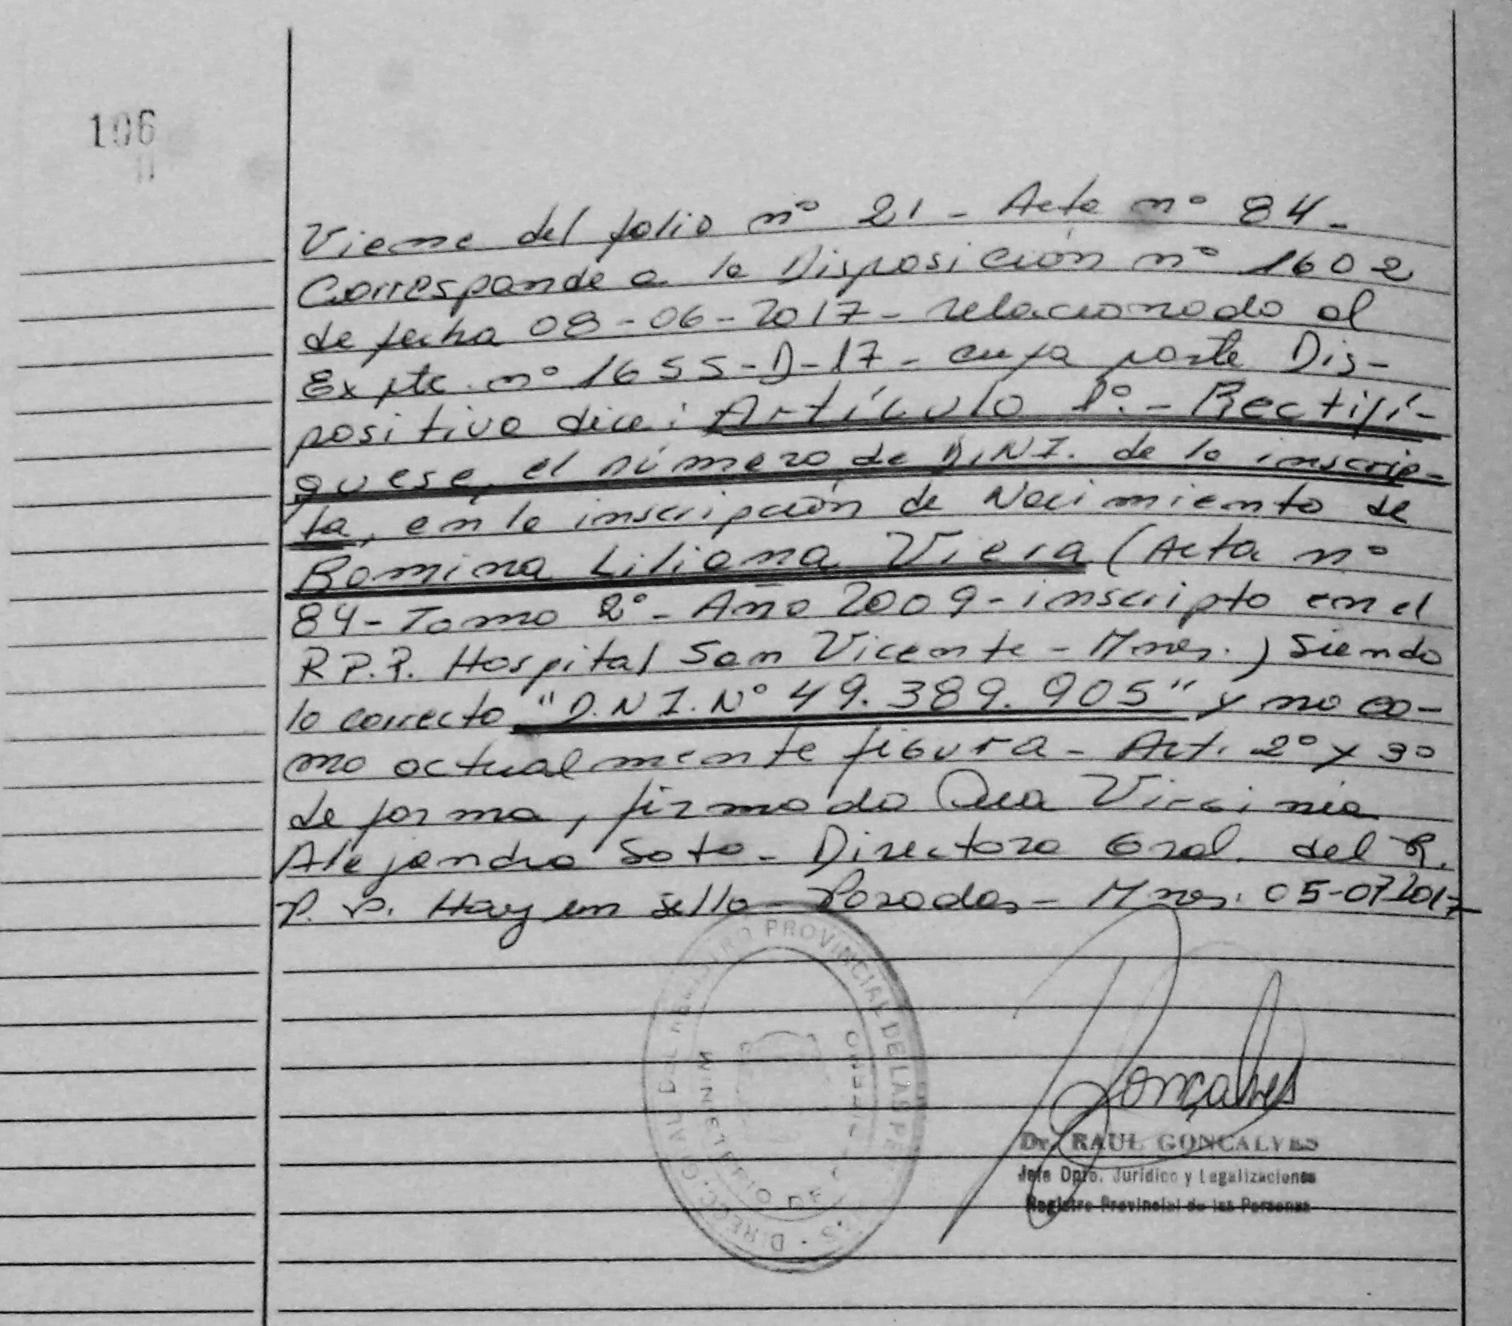 106
11
Viene del folio nº 21 - Acta nº 84 -
Corresponde a la Disposición nº 1602
de fecha 08-06-2017 - relacionado al
Expte. nº 1655-D-17 - cuya parte Dis-
positiva dice: Artículo 1º.- Rectifí-
quese, el número de D.N.I. de la inscrip-
ta, en la inscripción de Nacimiento de
Romina Liliana Viera (Acta nº
84 - Tomo 2º - Año 2009 - inscripto en el
R.P.P. Hospital San Vicente - Mnes.) Siendo
lo correcto "D.N.I. Nº 49.389.905" y no co-
mo actualmente figura - Art. 2º y 3º
de forma, firmado Dra Virginia
Alejandra Soto - Directora Gral. del R.
P. P. Hay un sello - Posadas - Mnes. 05-07-2017
DIRECC. GRAL DEL REGISTRO PROVINCIAL DE LAS PE
MINISTERIO DE
GOBIERNO
Gonçalves
Dr. RAUL GONCALVES
Jefe Dpto. Jurídico y Legalizaciones
Registro Provincial de las Personas